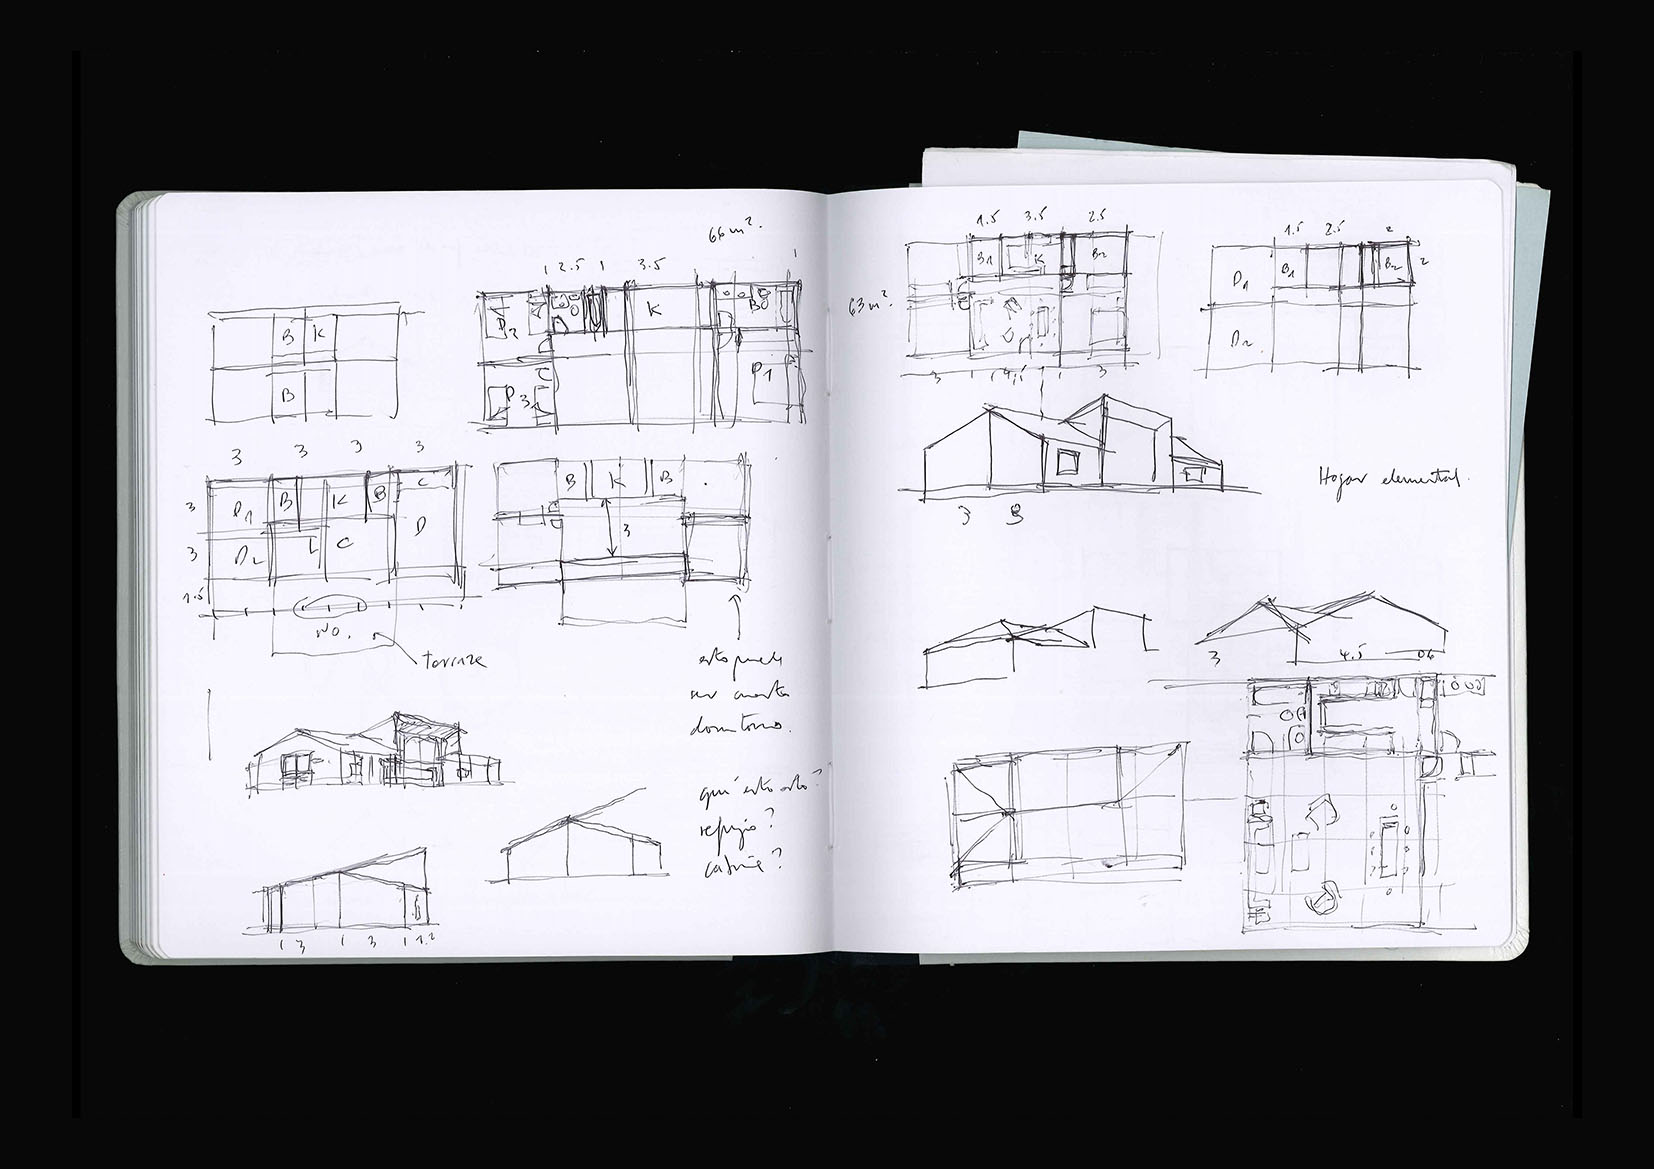 66 m².
1 2.5 1 3.5 1
B K
B
D2 K B
D3 D1
3 3 3 3
3 D1 B K B C
3 D2 L C D
1.5
NO.
terraza
B K B
3
esto puede
ser cuarto
dormitorio.
qué es esto?
refugio?
1 3 1 3 1 1.2
1.5 3.5 2.5
B1 K B2
63 m².
3 1 4.5 1 3
1.5 2.5 2
D1 B1 B2 2
D2
3 3
Hogar elemental.
3 4.5 06